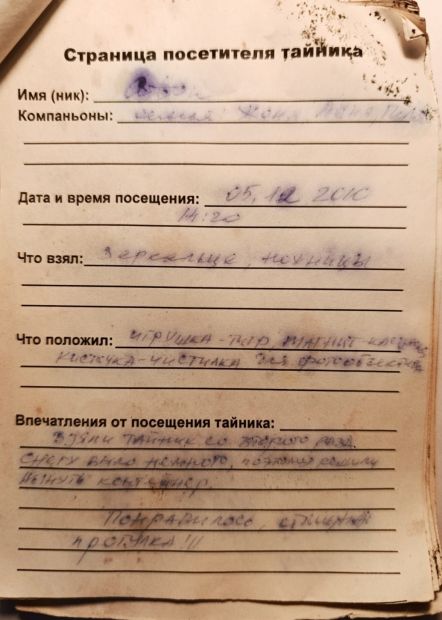 Страница посетителя тайника
Имя (ник):
Компаньоны: Жена
Дата и время посещения: 05.12 2010
14:20
Что взял: Зеркальце, ножницы
Что положил: ИГРУШКА-ТИГР, МАГНИТ-
КИСТОЧКА-ЧИСТИЛКА ДЛЯ фотообъектива
Впечатления от посещения тайника:
ВЗЯЛИ ТАЙНИК СО ВТОРОГО РАЗА.
СНЕГУ БЫЛО НЕМНОГО, поэтому решили
контейнер.
ПОНРАВИЛОСЬ,
ПРОГУЛКА!!!